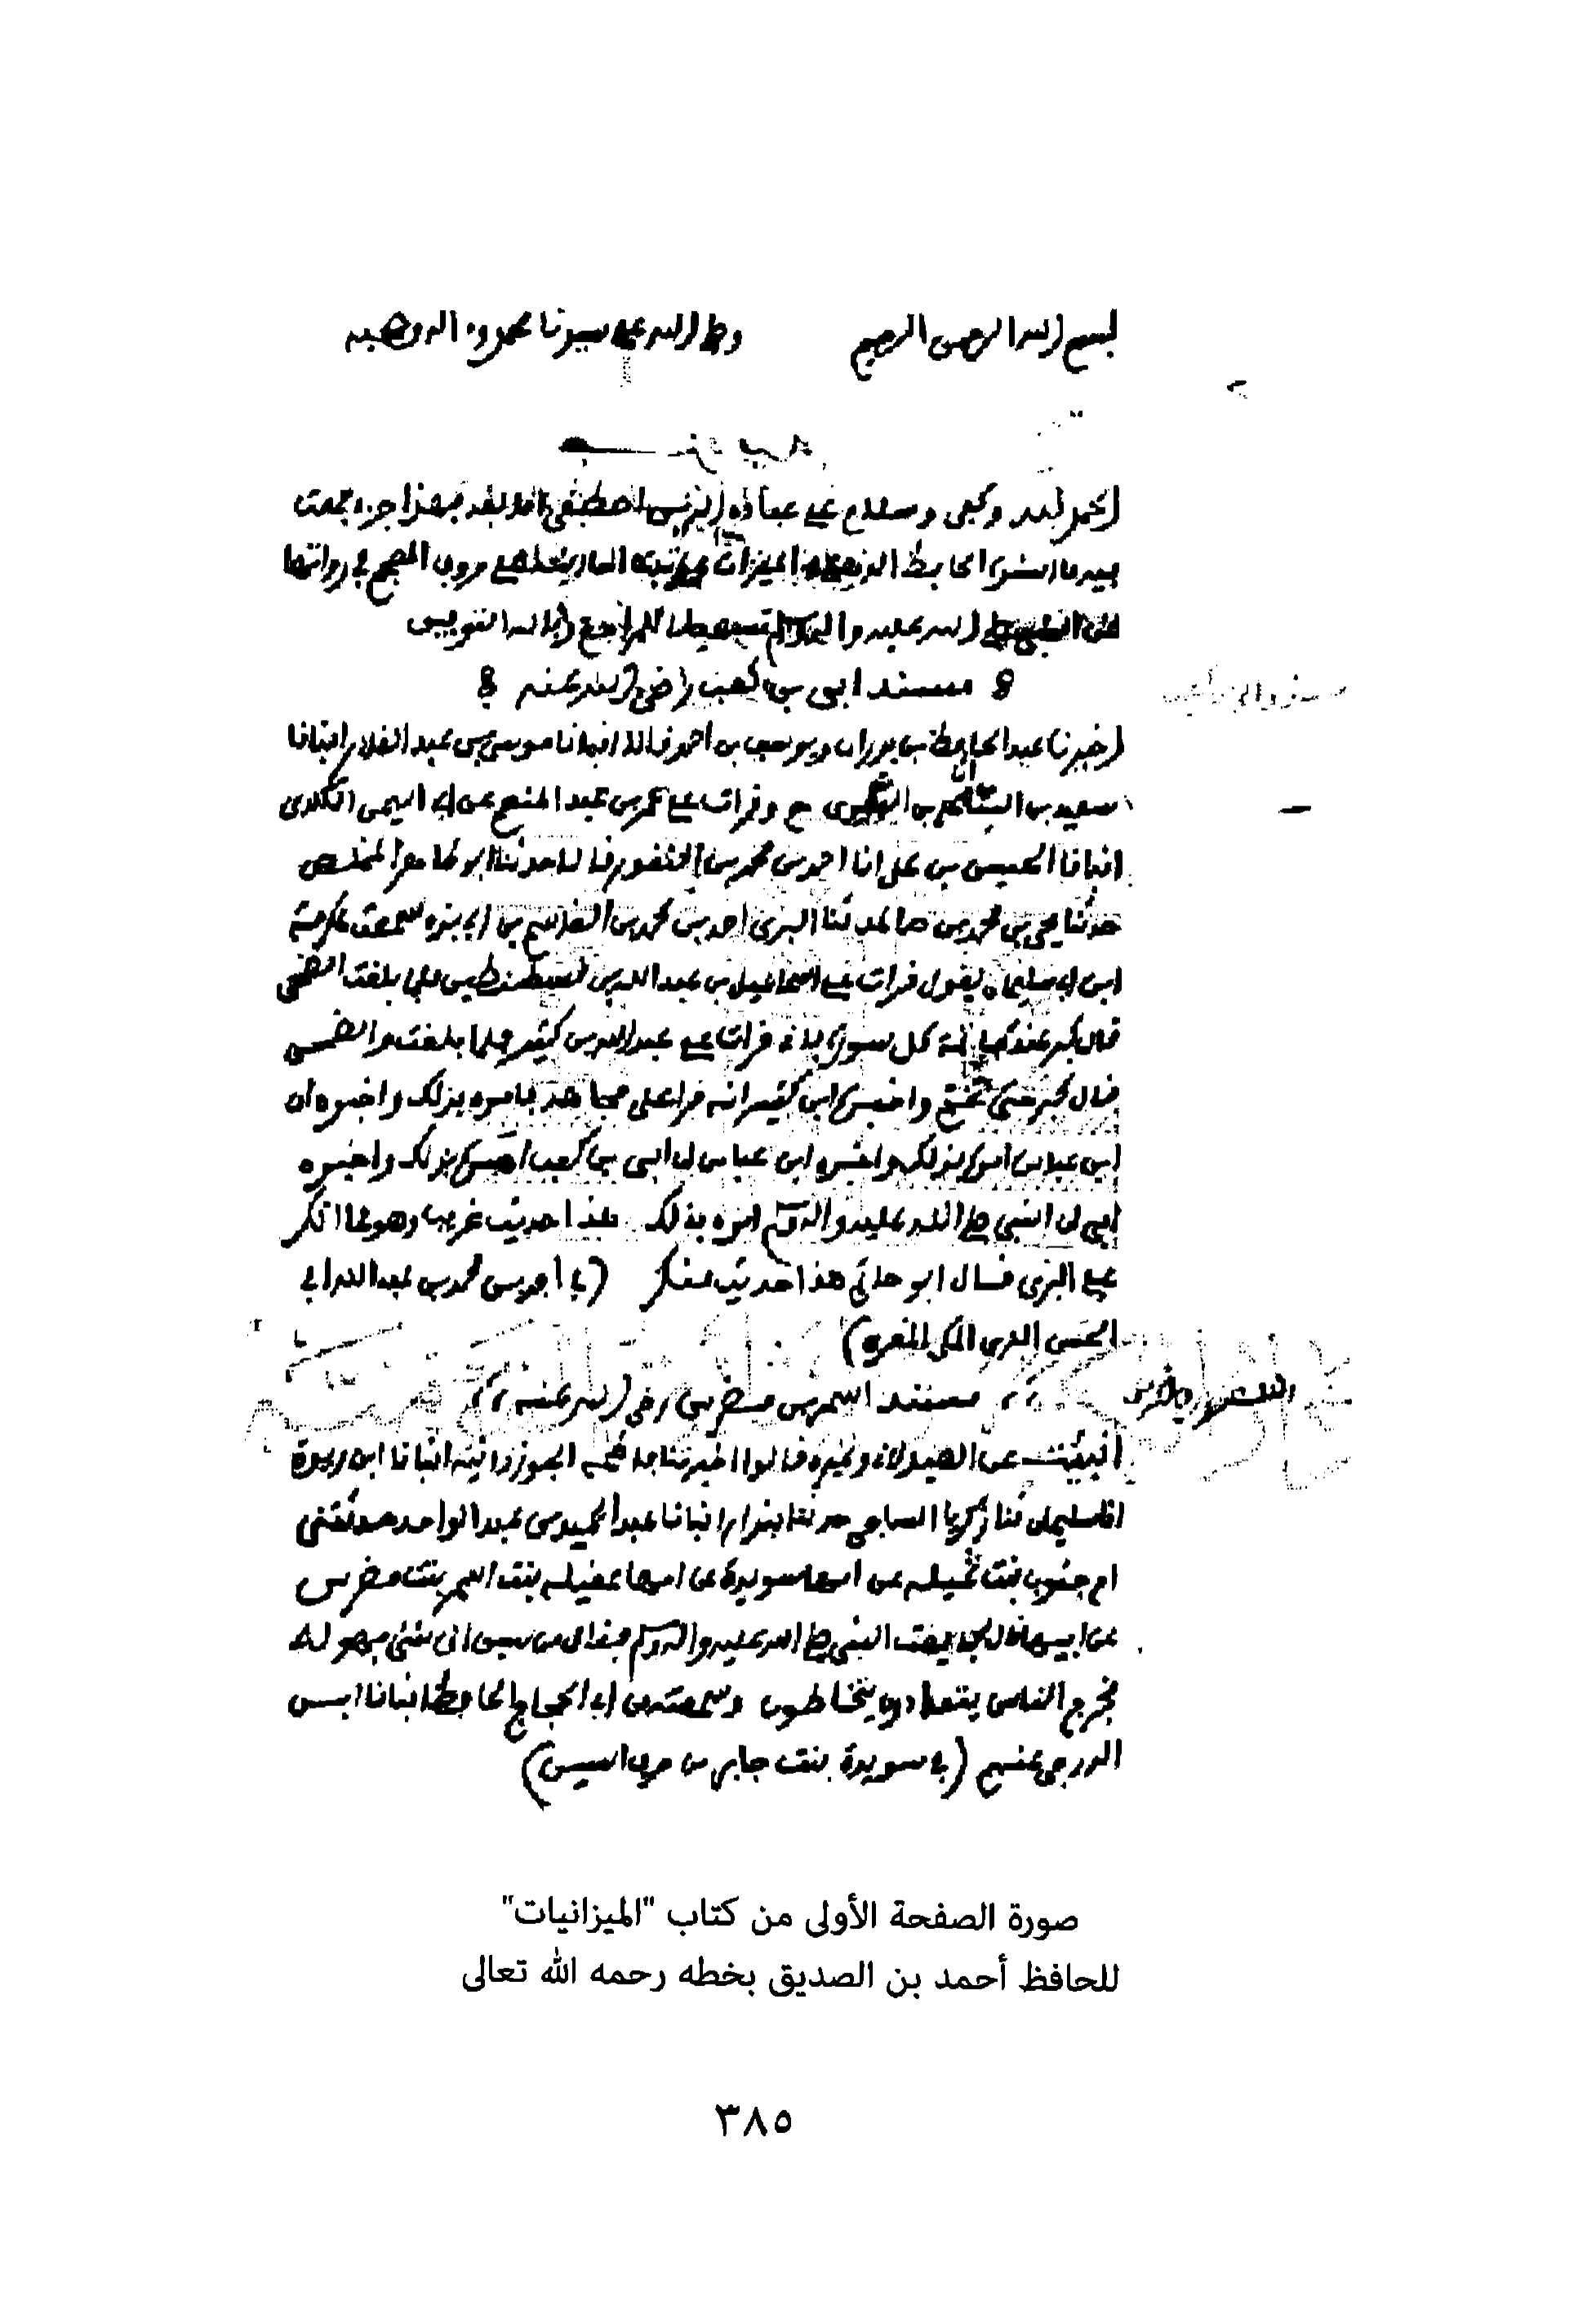 بسم الله الرحمن الرحيم وصلى الله على سيدنا محمد وءاله وصحبه
الحمد لله وكفى وسلام على عباده الذين اصطفى اما بعد فهذا جزء جمعت
فيه ما اسنده الحافظ الذهبي في الميزان الحاديث على حروف المعجم في رواتها
عن النبي صلى الله عليه وءاله وسلم للمراجع وبالله التوفيق
مسند ابي بن كعب رضي الله عنه
اخبرنا عبد الحافظ بن بدران ويوسف بن احمد قالا انبانا موسى بن عبد القادر انبانا
سعيد بن احمد بن ح وقرات على عمر بن عبد المنعم عن ابي اليمن الكندي
انبانا الحسين بن على انا احمد بن محمد بن النقور قالا حدثنا ابو طاهر المخلص
حدثنا يحي بن محمد بن صاعد ثنا البزي احمد بن محمد بن القاسم بن ابي بزه سمعت عكرمة
ابن ابي سليمان يقول قرات على اسماعيل بن عبد الله بن قسطنطين فلما بلغت الضحى
قال كبر عند خاتمة كل سورة فانى قرات على عبد الله بن كثير فلما بلغت والضحى
قال كبر حتى تختم واخبرني ابن كثير انه قرا على مجاهد فامره بذلك واخبره ان
ابن عباس امره بذلك واخبره ابن عباس ان ابي بن كعب امره بذلك واخبره
ابي ان النبي صلى الله عليه وءاله وسلم امره بذلك هذا حديث غريب وهو مما انكر
على البزي قال ابو حاتم هذا حديث منكر (في احمد بن محمد بن عبد الله ابي
الحسن البزي المكي المقرى)
مسند اسمر بن مضرس رضي الله عنه
انبئت عن الصيدلاني وغيره قالوا اخبرتنا فاطمة الجوزدانية انبانا ابن ريذة
انا سليمان ثنا زكريا الساجي حدثنا بندار انبانا عبد الحميد بن عبد الواحد حدثتني
ام جنوب بنت نميلة عن امها سويدة عن امها عقيلة بنت اسمر بنت مضرس
عن ابيها قال بايعت النبي صلى الله عليه وءاله وسلم فقال من سبق الى شئ فهو له
فخرج الناس يتعادون يتخاطون وسمعته من ابي الحجاج الحافظ انبانا ابن
الدرجي عنهم (في سويدة بنت جابر من حرف السين)
صورة الصفحة الأولى من كتاب "الميزانيات"
للحافظ أحمد بن الصديق بخطه رحمه الله تعالى
٣٨٥